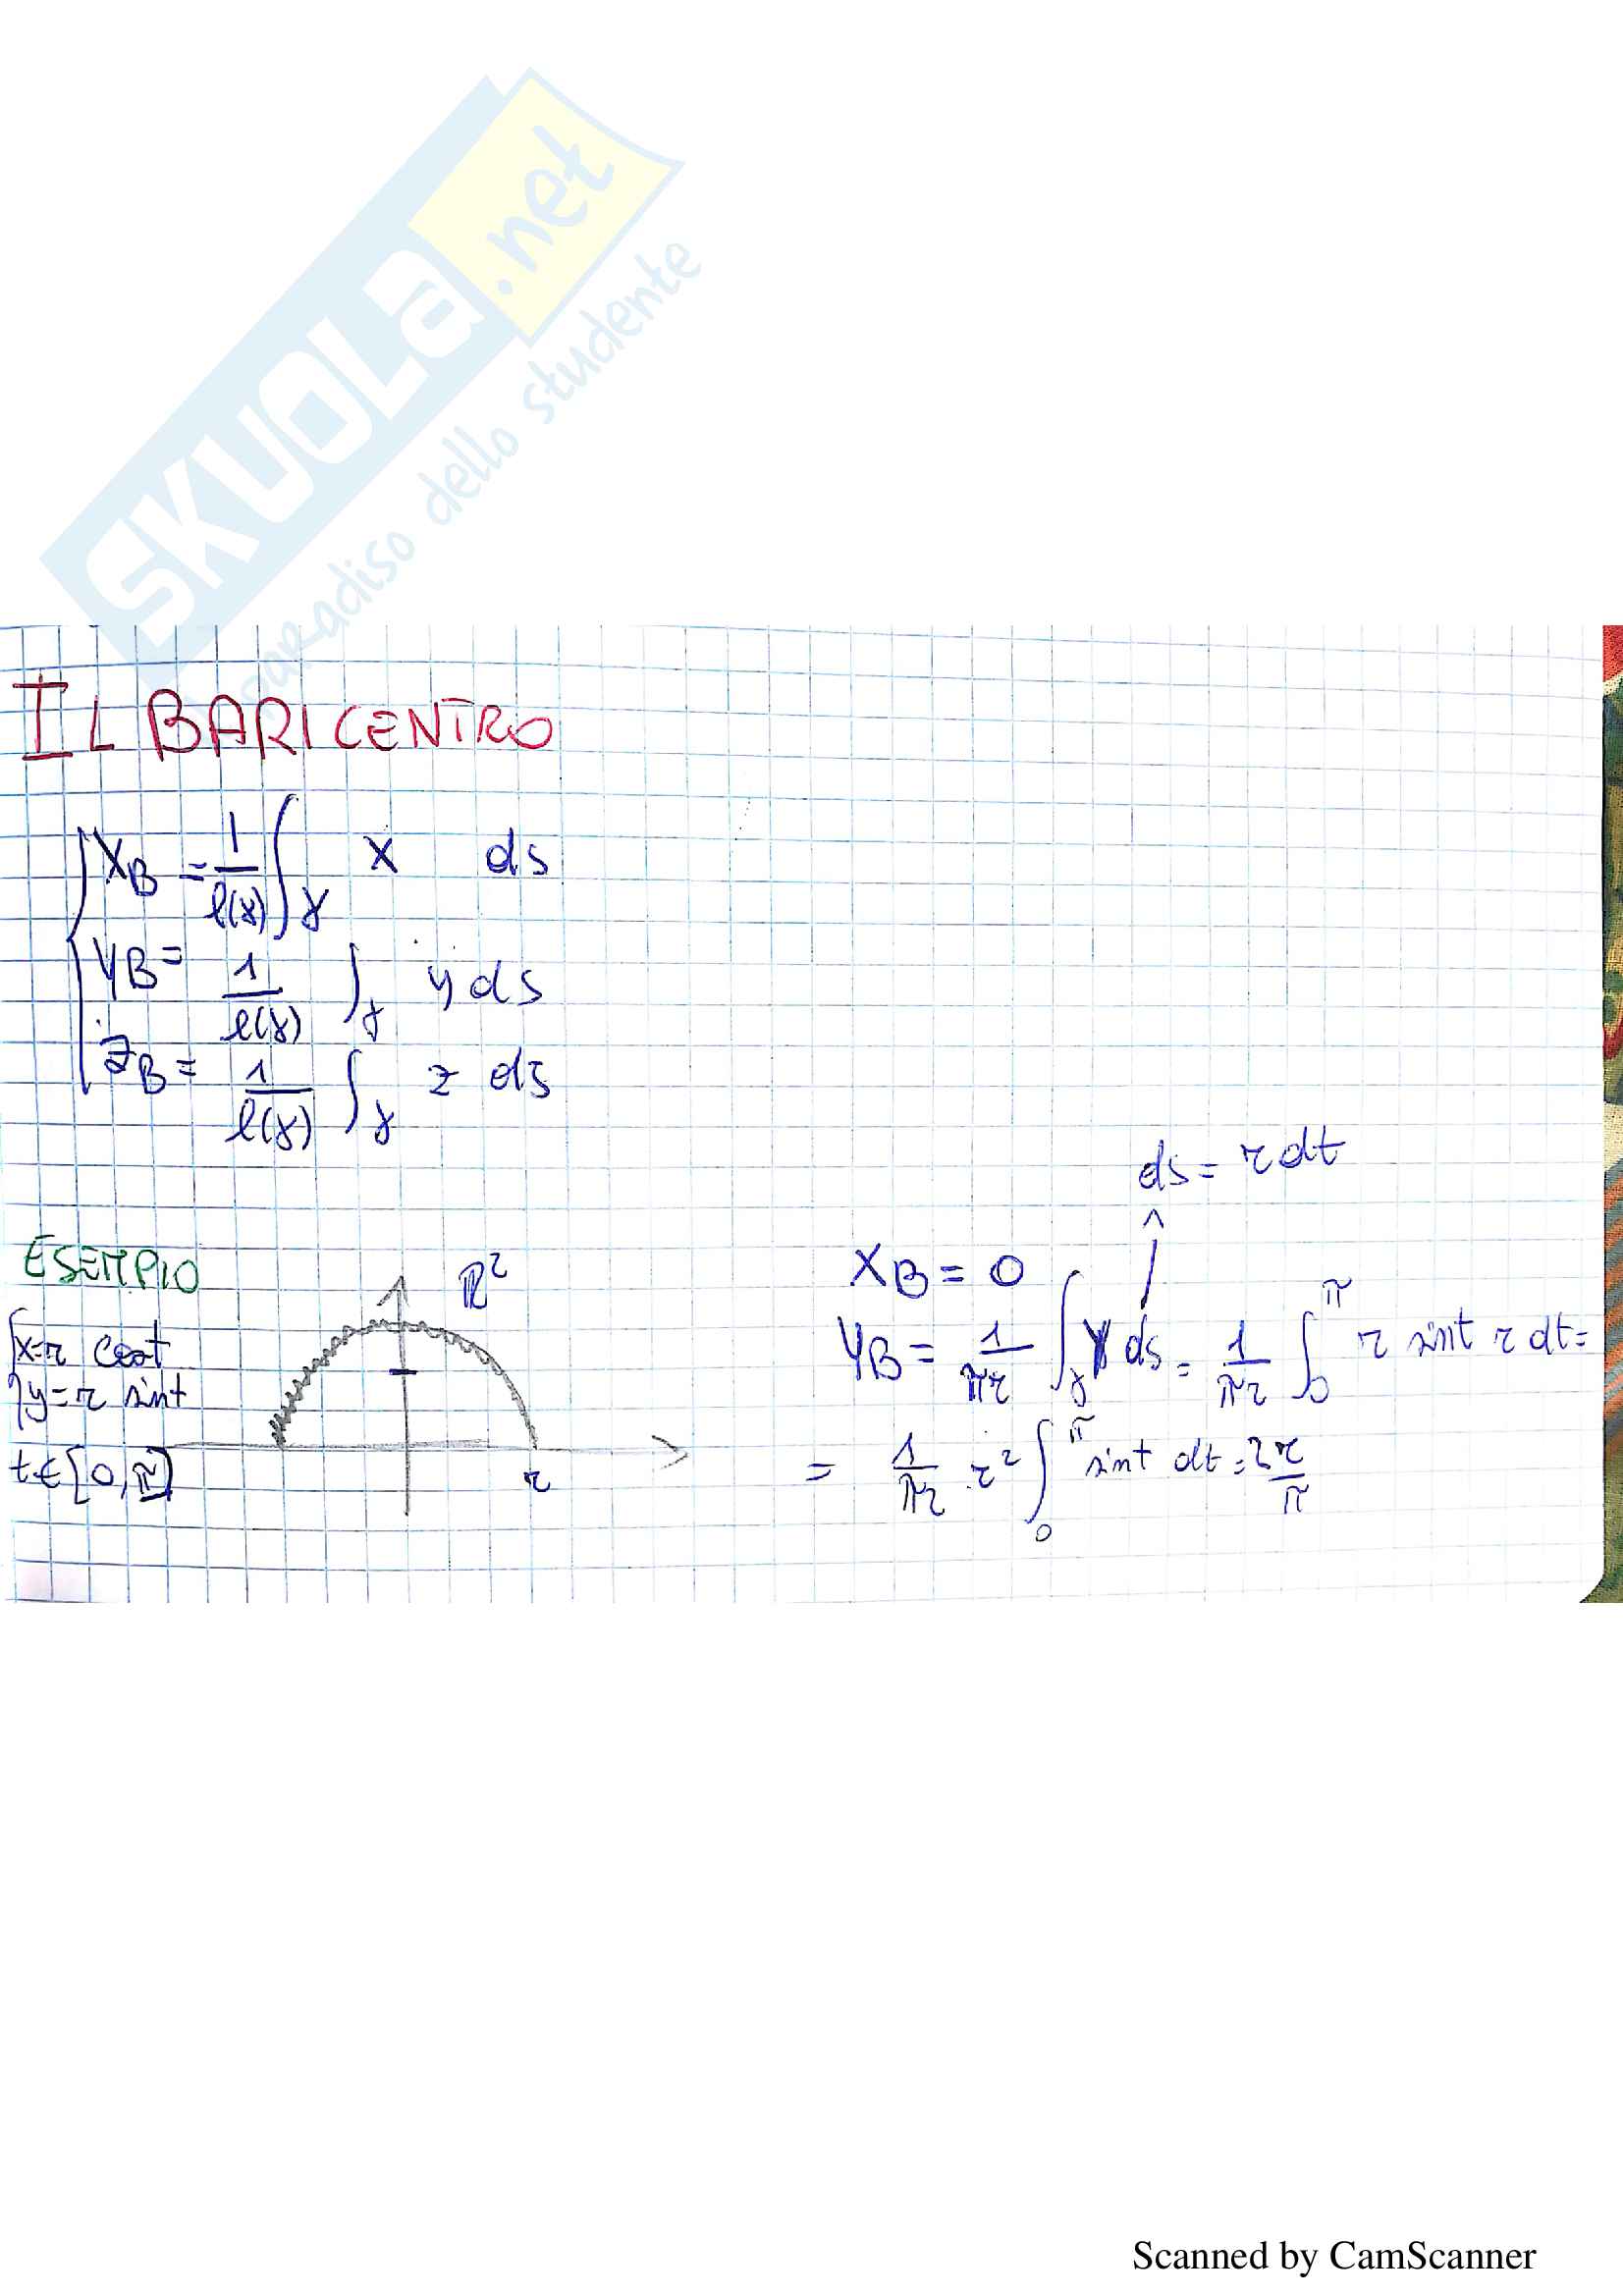 SKUOLA.net
paradiso dello studente
IL BARICENTRO
x_B = 1/ℓ(γ) ∫_γ x ds
y_B = 1/ℓ(γ) ∫_γ y ds
z_B = 1/ℓ(γ) ∫_γ z ds
ds = r dt
ESEMPIO
x = r cost
y = r sint
t ∈ [0, π]
ℝ²
r
x_B = 0
y_B = 1/πr ∫_γ y ds = 1/πr ∫_0^π r sint r dt =
= 1/πr · r² ∫_0^π sint dt = 2r/π
Scanned by CamScanner